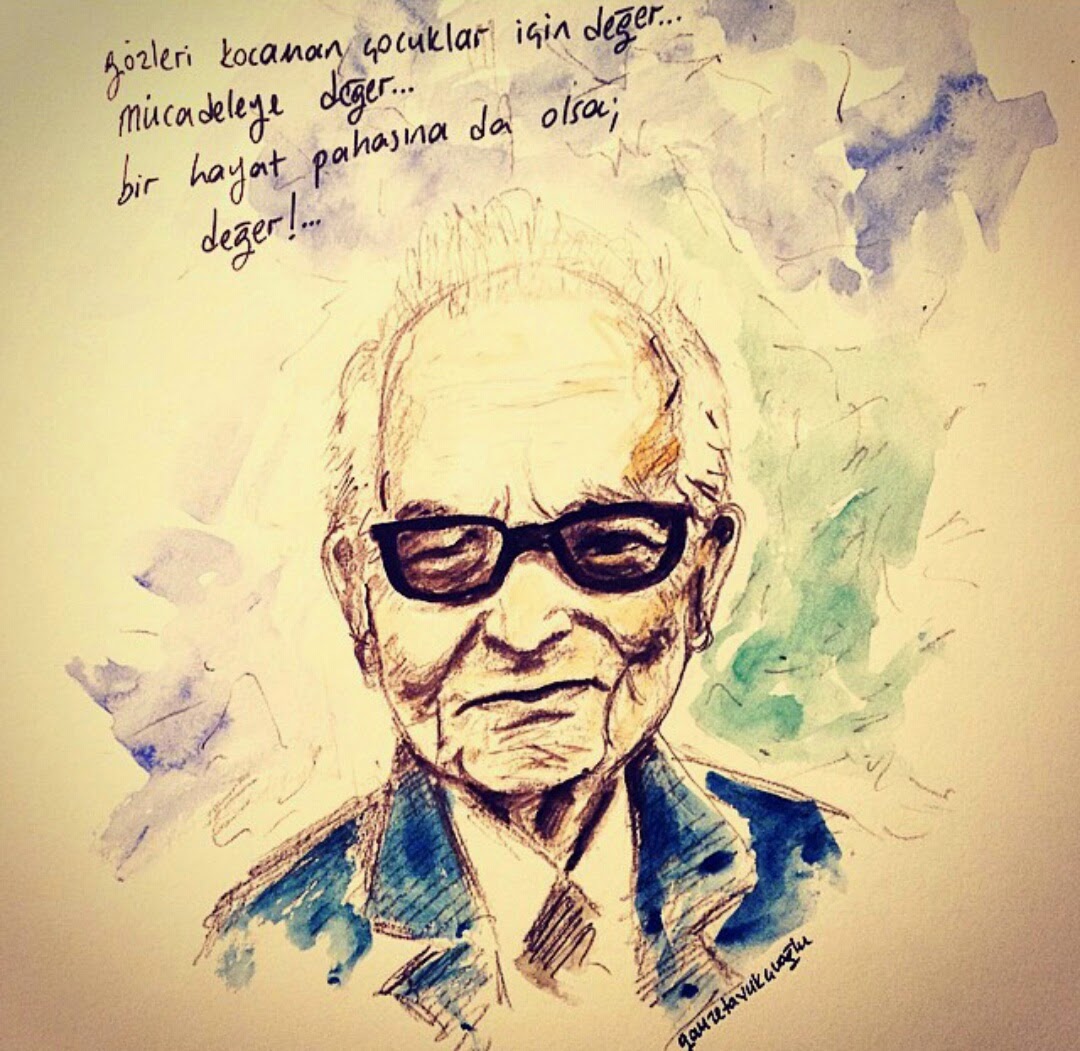 gözleri kocaman çocuklar için değer...
mücadeleye değer...
bir hayat pahasına da olsa;
değer!...
gamzetavukcuoğlu